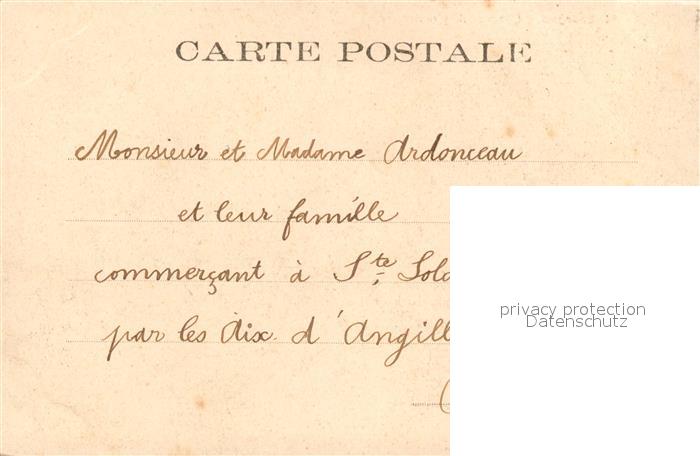 CARTE POSTALE
Monsieur et Madame Ardonceau
et leur famille
commerçant à Ste Solo
par les Aix d'Angill
privacy protection
Datenschutz